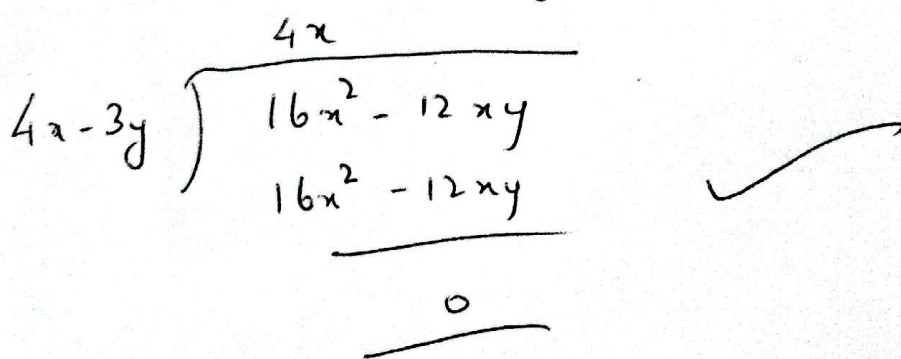 4x
4x - 3y ) 16x² - 12xy
16x² - 12xy
0